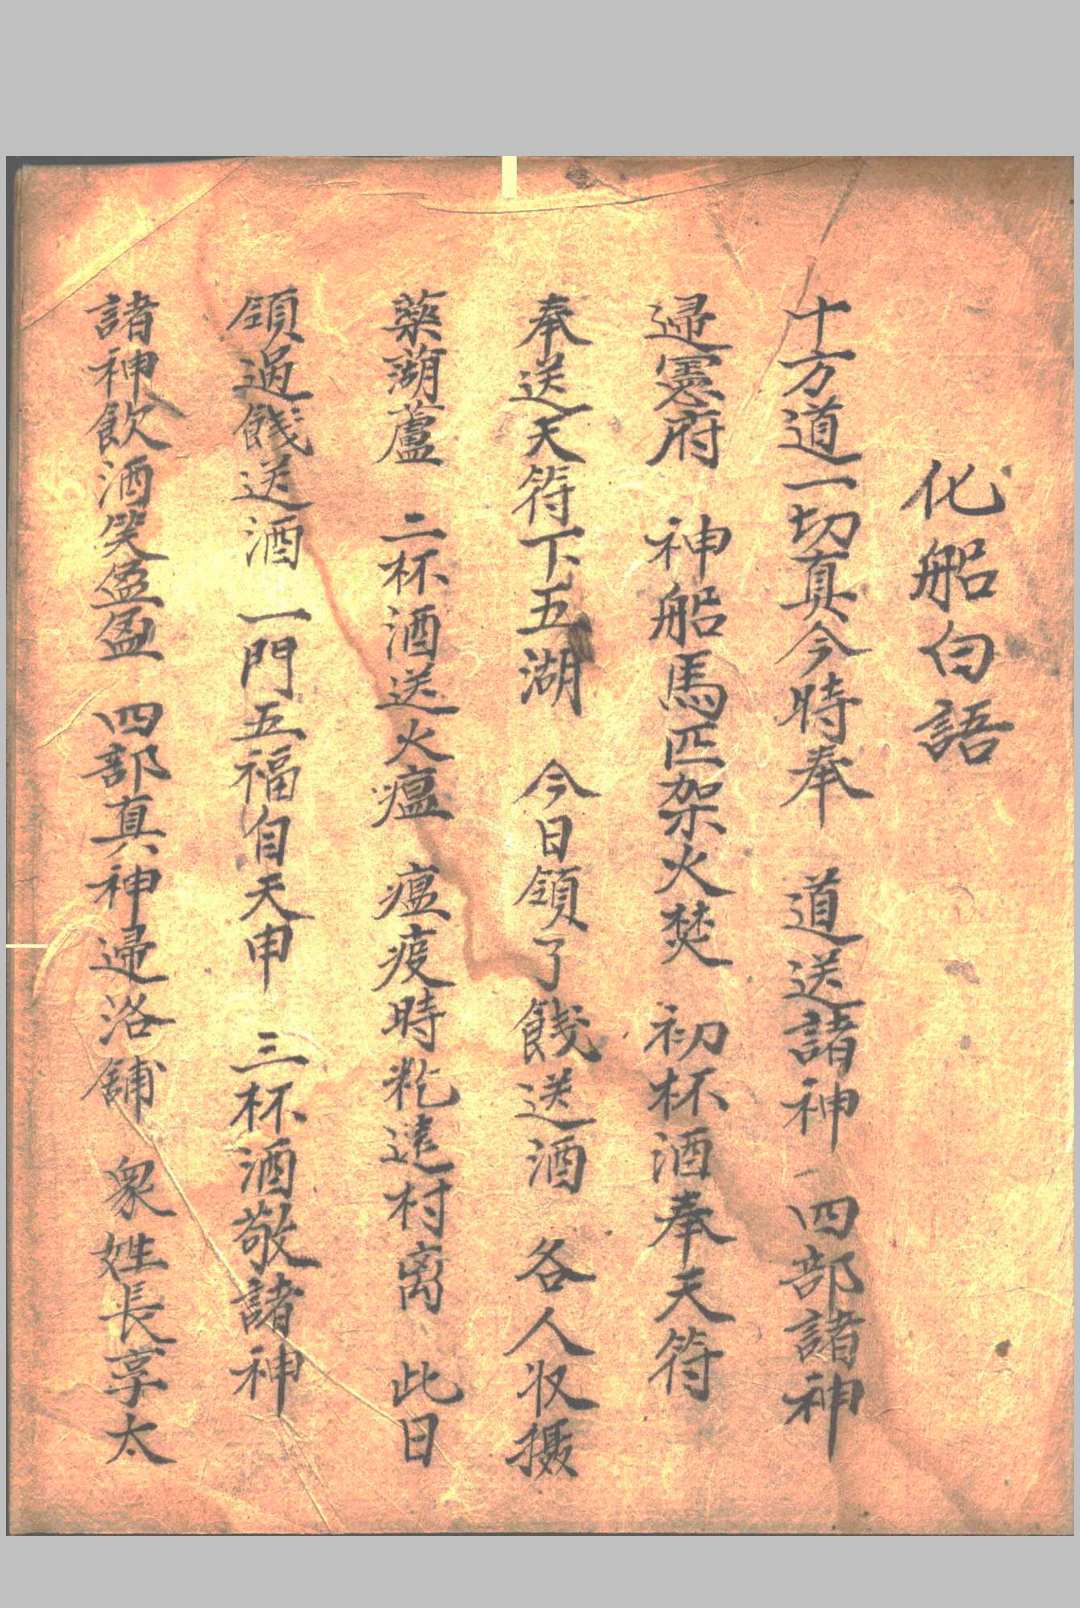 化船白語
十方道一切真今時奉　道送諸神　四部諸神
歸憲府　神船馬匹架火焚　初杯酒奉天符
奉送天符下五湖　今日領了餞送酒　各人收攝
藥湖蘆　二杯酒送火瘟　瘟疫時籺遠村离　此日
領過餞送酒　一門五福自天申　三杯酒敬諸神
諸神飲酒笑盈盈　四部真神歸洛舖　衆姓長享太